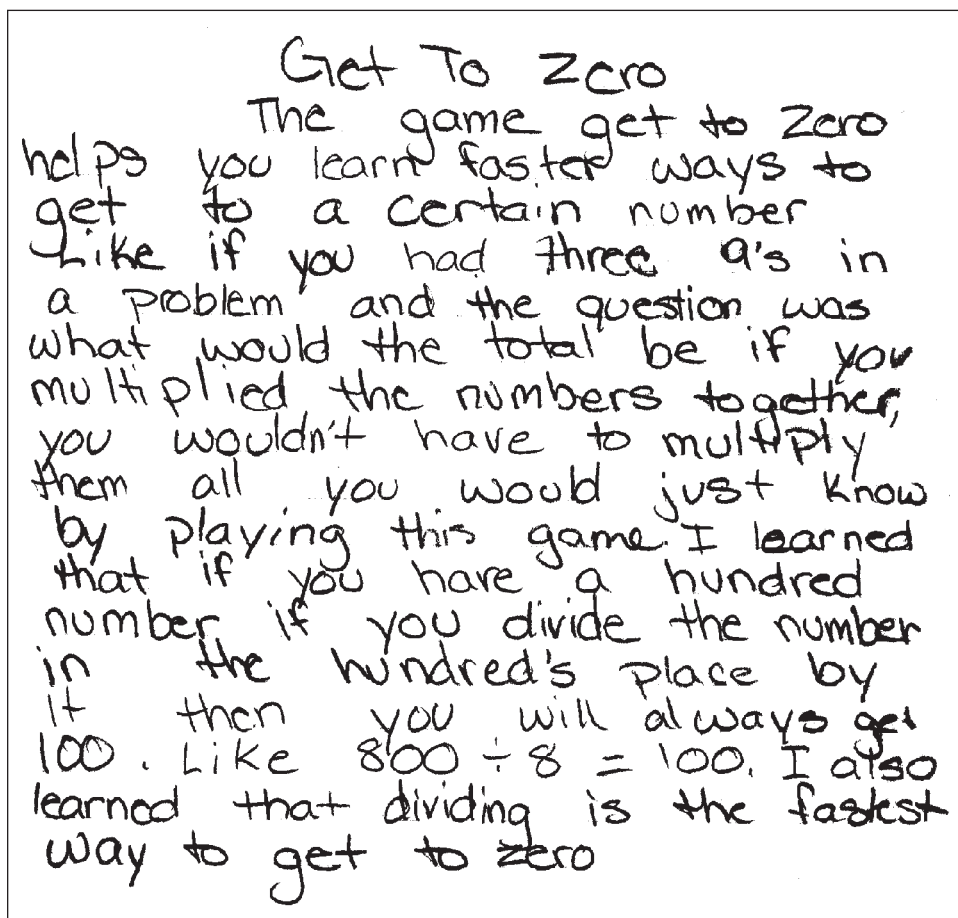 Get To Zero
The game get to zero
helps you learn faster ways to
get to a certain number
Like if you had three 9's in
a problem and the question was
what would the total be if you
multiplied the numbers together,
you wouldn't have to multiply
them all you would just know
by playing this game. I learned
that if you have a hundred
number, if you divide the number
in the hundred's place by
it then you will always get
100. Like 800 ÷ 8 = 100. I also
learned that dividing is the fastest
way to get to zero